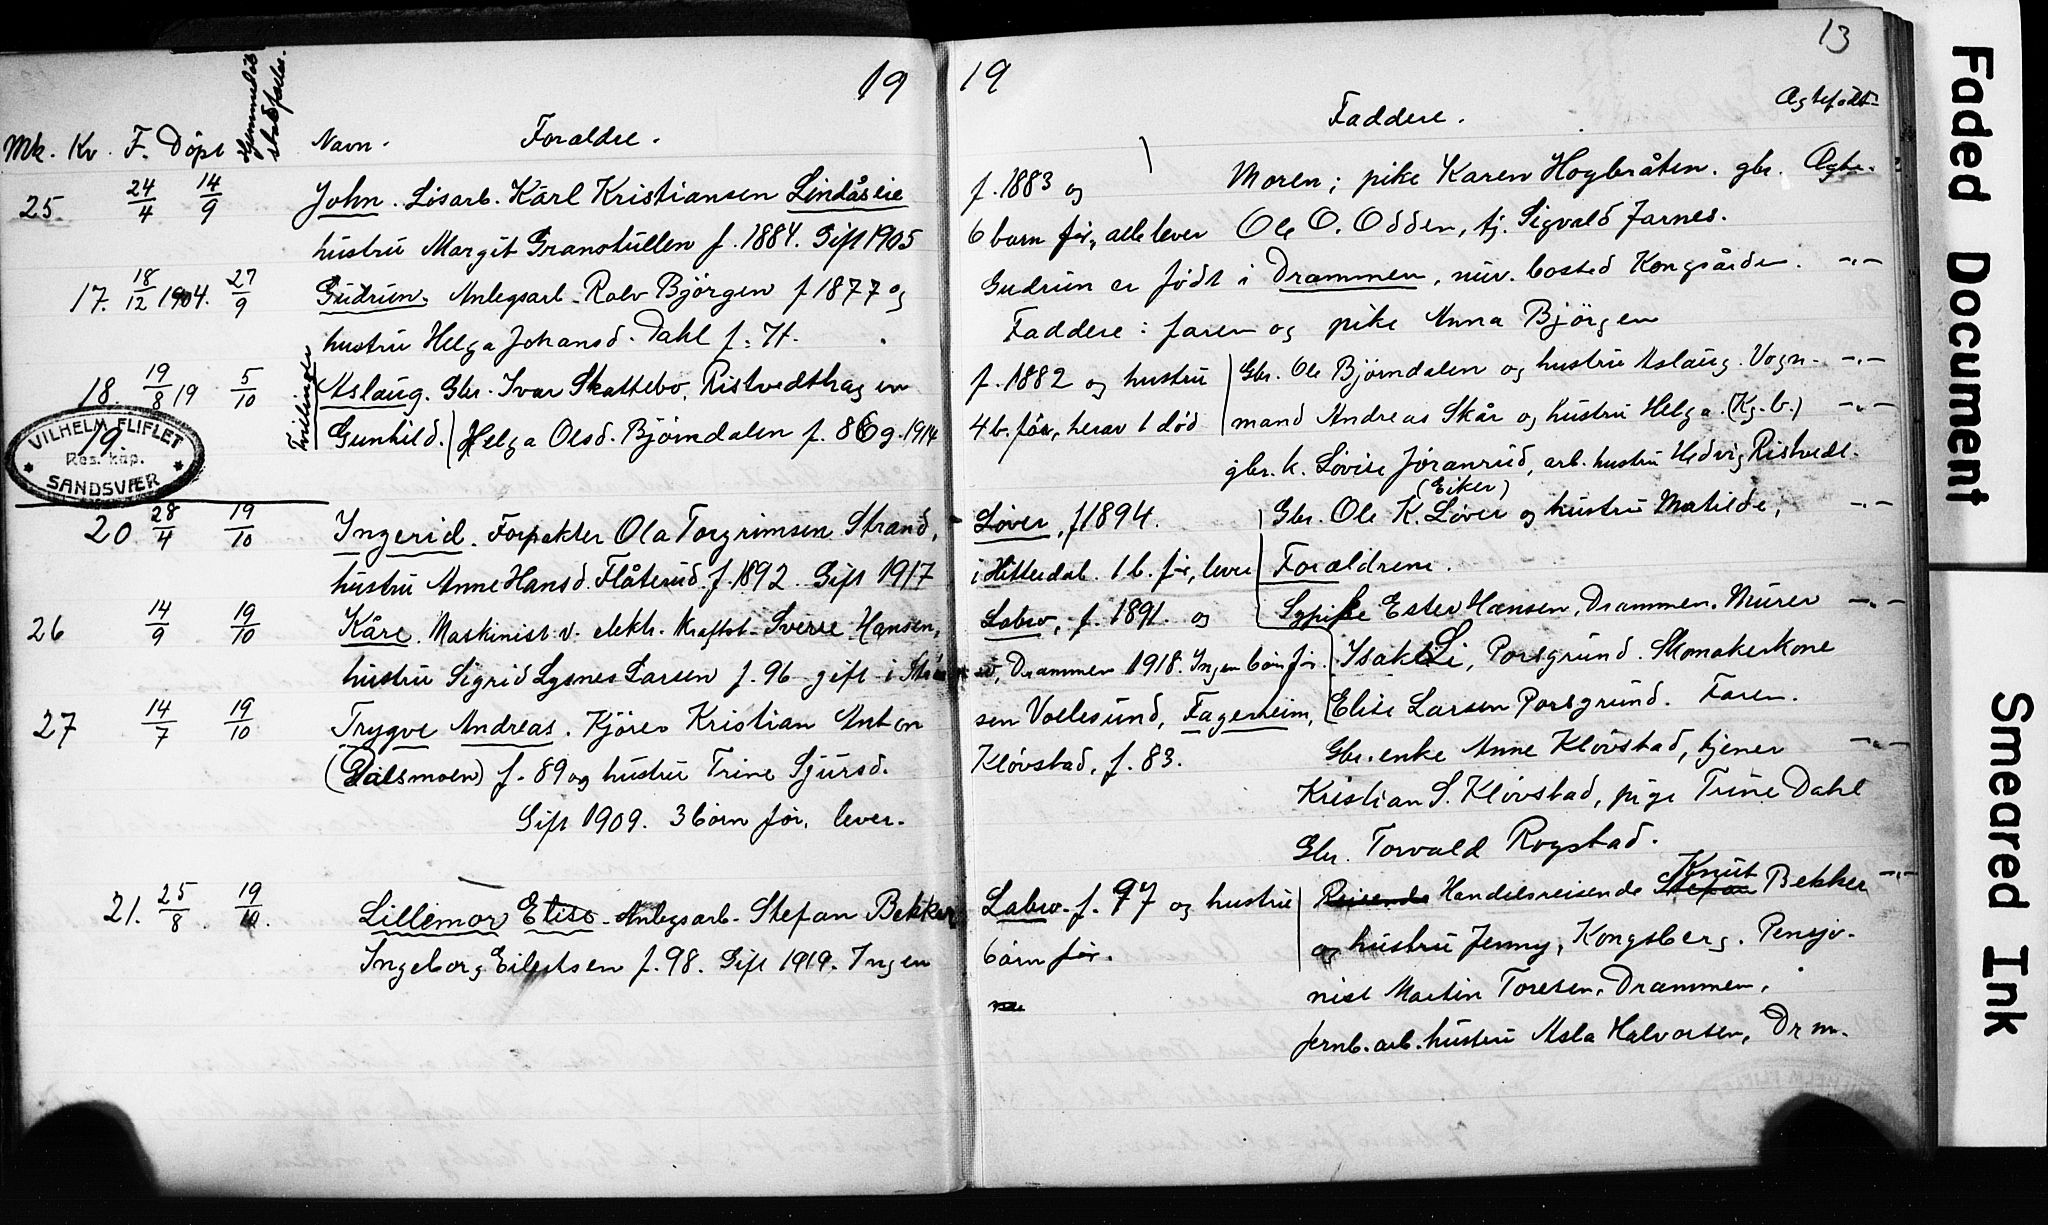 19
Mk. Kv. F. Döpt Hjemmedöb stadfæstes. Navn. Forældre.
25 24/4 14/9 John. Lösarb. Karl Kristiansen Lindåseie
hustru Margit Granstullen f. 1884. Gift 1905
17. 18/12 1904. 27/9 Gudrun. Anlegsarb. Rolv Bjørgen f 1877 og
hustru Helga Johansd. Dahl f. 74.
18. 19/8 19 5/10 Tvillinger Aslaug. Gbr. Ivar Skattebo, Ristvedthagen
19. Gunhild. Helga Olsd. Björndalen f. 86 g. 1914
VILHELM FLIFLET
Res. kap.
SANDSVÆR
20 28/4 19/10 Ingerid. Forpakter Ola Torgrimsen Strand,
hustru Anne Hansd. Flåterud f. 1892. Gift 1917
26 14/9 19/10 Kåre. Maskinist v. elektr. kraftst. Sverre Hansen,
hustru Sigrid Lysnes Larsen f. 96 gift i
27 14/7 19/10 Trygve Andreas. Kjörer Kristian Anton
(Dalsmoen) f. 89 og hustru Trine Sjursd.
Gift 1909. 3 börn før, lever.
21. 25/8 19/10. Lillemor Elise. Anlegsarb. Stefan Bekker
Ingeborg Eilertsen f. 98. Gift 1919. Ingen
19 13
Faddere. Ægtefödt
f. 1883 og Moren; pike Karen Hogbråten. gbr. Ægte.
6 barn før, alle lever Ole O. Odden, tj. Sigvald Jarnes.
Gudrun er født i Drammen, nuv. bosted Kongsgården. -"-
Faddere: faren og pike Anna Bjørgen
f. 1882 og hustru Gbr. Ole Björndalen og hustru Aslaug. Vogn- -"-
4 b. før, herav 1 død mand Andreas Skår og hustru Helga. (Kg.b.) -"-
gbr. k. Lovise Jøranrud, arb. hustru Hedvig Ristvedt.
Løver, f 1894. Gbr. Ole K. Løver (Eiker) og hustru Matilde, -"-
i Hitterdal. 1 b. før, lever Forældrene.
Labro, f. 1891. og Sypike Ester Hansen, Drammen. Murer -"-
Drammen 1918. Ingen börn før. Isak Li, Porsgrund. Skomakerkone
sen Vollesund, Fagerheim, Elise Larsen Porsgrund. Faren.
Klövstad, f. 83. Gbr. enke Anne Klövstad, tjener -"-
Kristian S. Klövstad, pige Trine Dahl
Gbr. Torvald Rogstad.
Labro. f. 97 og hustru Reisende Handelsreisende Stefan Knut Bekker -"-
börn før. og hustru Jenny, Kongsberg. Pensjo-
nist Martin Toresen, Drammen,
jernb. arb. hustru Asla Halvorsen, Drm.
Faded Document
Smeared Ink